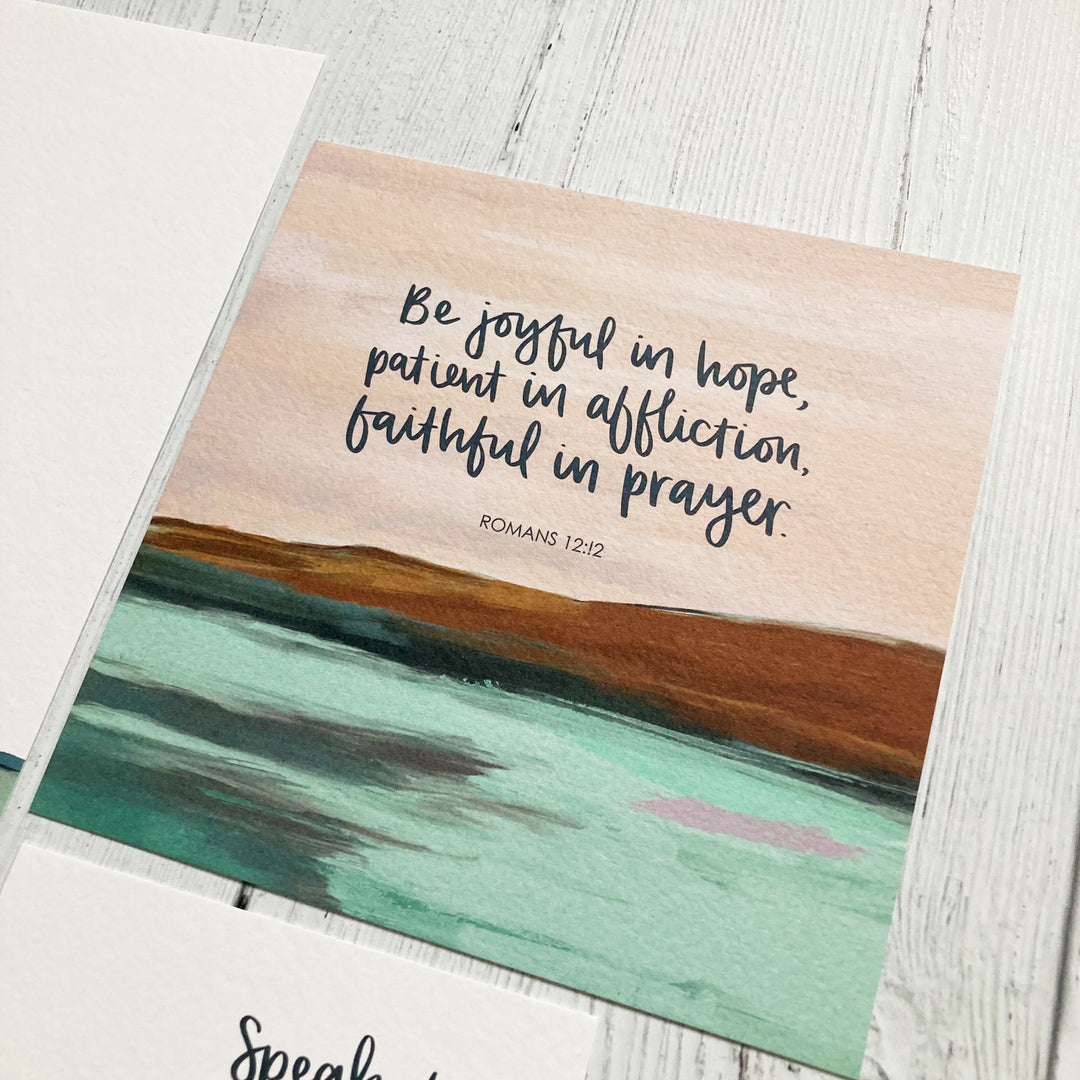 Be joyful in hope,
patient in affliction,
faithful in prayer.
ROMANS 12:!2
Speak